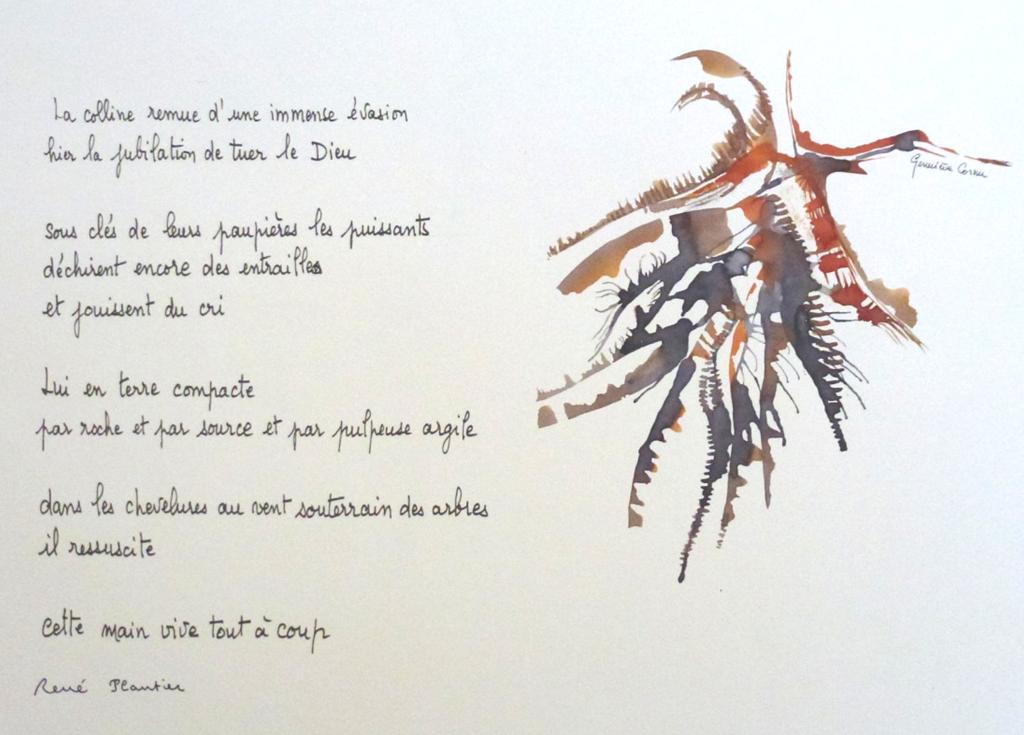 La colline remue d'une immense évasion
hier la jubilation de tuer le Dieu
sous clés de leurs paupières les puissants
déchirent encore des entrailles
et jouissent du cri
Lui en terre compacte
par roche et par source et par pulpeuse argile
dans les chevelures au vent souterrain des arbres
il ressuscite
Cette main vive tout à coup
René Plantier
Geneviève Cornu